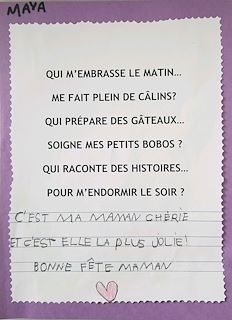 MAYA
QUI M'EMBRASSE LE MATIN...
ME FAIT PLEIN DE CÂLINS?
QUI PRÉPARE DES GÂTEAUX...
SOIGNE MES PETITS BOBOS ?
QUI RACONTE DES HISTOIRES...
POUR M'ENDORMIR LE SOIR ?
C'EST MA MAMAN CHÉRIE
ET C'EST ELLE LA PLUS JOLIE!
BONNE FÊTE MAMAN